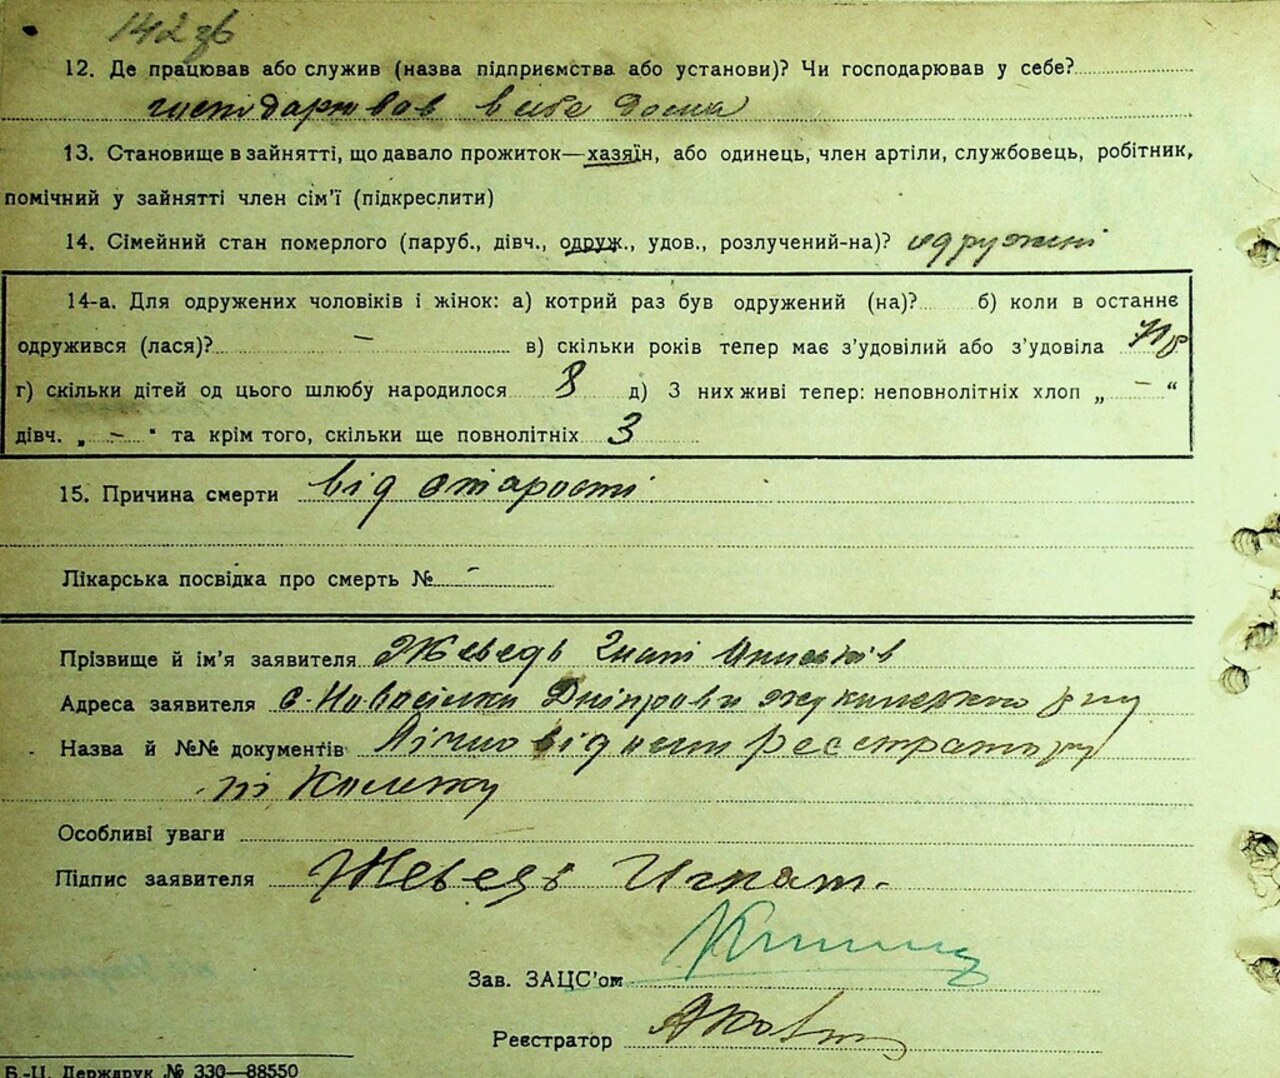 142 зв
12. Де працював або служив (назва підприємства або установи)? Чи господарював у себе?
господарював в себе дома
13. Становище в зайнятті, що давало прожиток—хазяїн, або одинець, член артіли, службовець, робітник,
помічний у зайнятті член сім'ї (підкреслити)
14. Сімейний стан померлого (паруб., дівч., одруж., удов., розлучений-на)? одружені
14-а. Для одружених чоловіків і жінок: а) котрий раз був одружений (на)? б) коли в останнє
одружився (лася)? – в) скільки років тепер має з'удовілий або з'удовіла
г) скільки дітей од цього шлюбу народилося 8 д) З них живі тепер: неповнолітніх хлоп „ – “
дівч. „ – “ та крім того, скільки ще повнолітніх 3
15. Причина смерти від старости
Лікарська посвідка про смерть № -
Прізвище й ім'я заявителя Жеведь Гнат
Адреса заявителя с. Новосілки Дніпрови
Назва й №№ документів Лічно реєстратору
Особливі уваги
Підпис заявителя Жеведь Игнат.
Зав. ЗАЦС'ом
Реєстратор
Б.-Ц. Держдрук № 330—88550